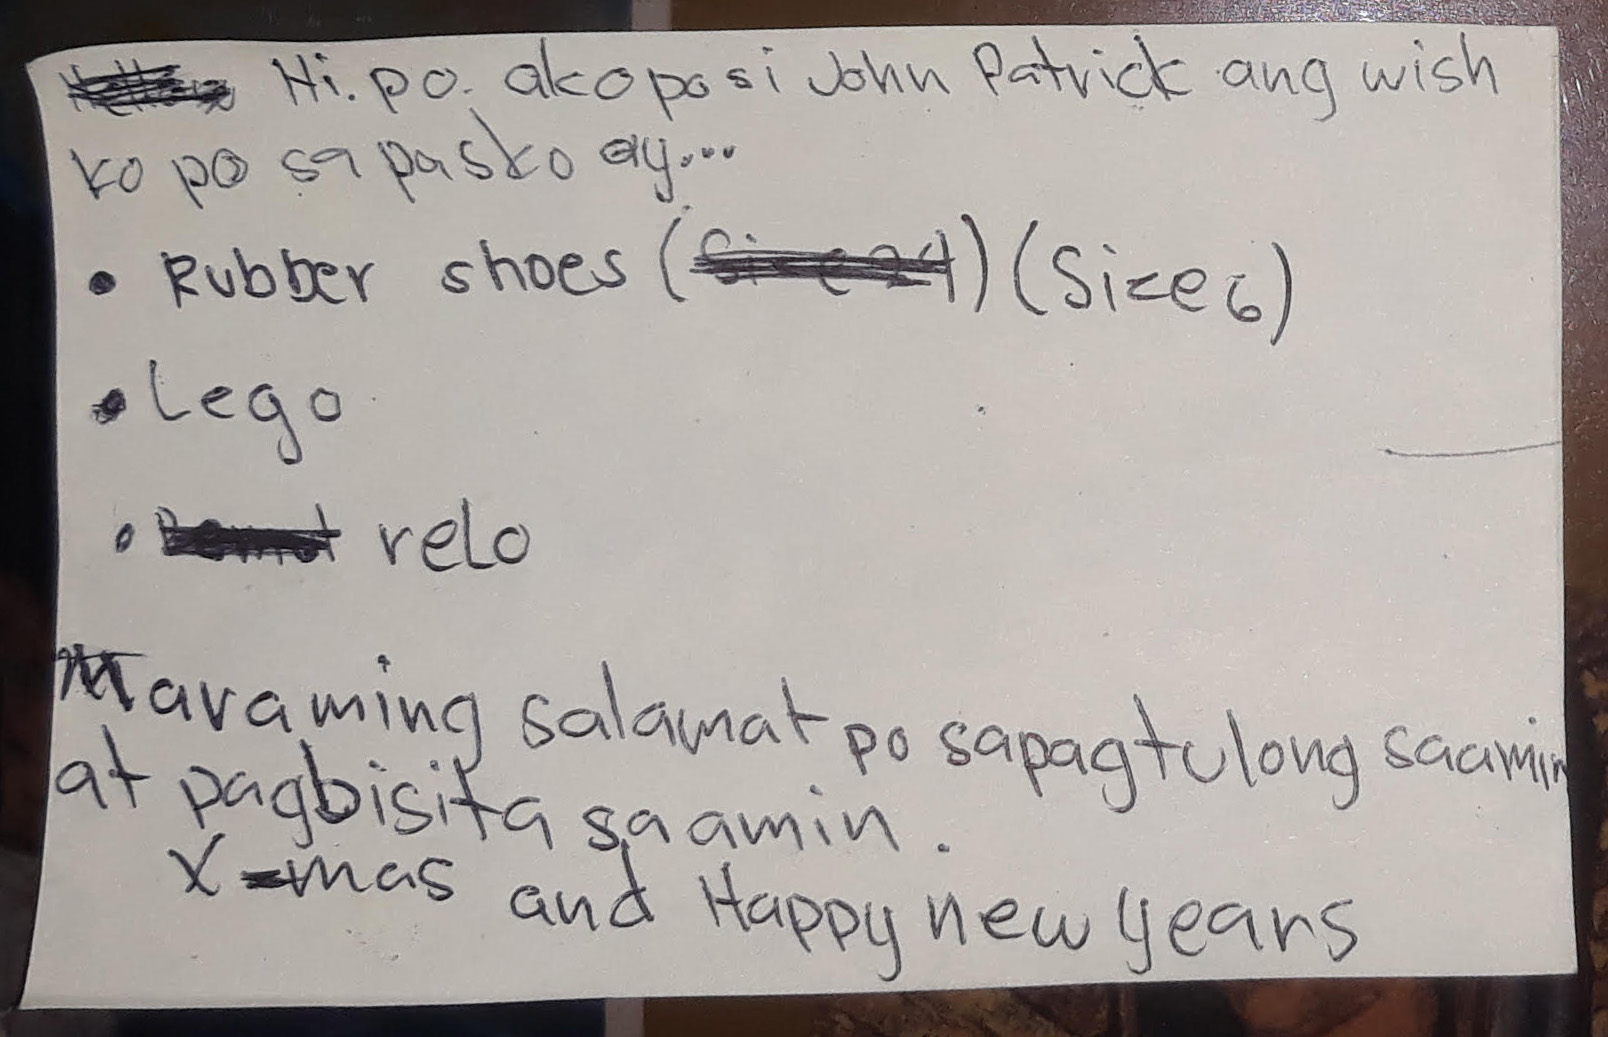 Hi. po. ako po si John Patrick ang wish
ko po sa pasko ay...
• Rubber shoes (Size 24) (Size 6)
• Lego
• relo
Maraming salamat po sapagtulong saamin
at pagbisita sa amin.
X-mas and Happy new years